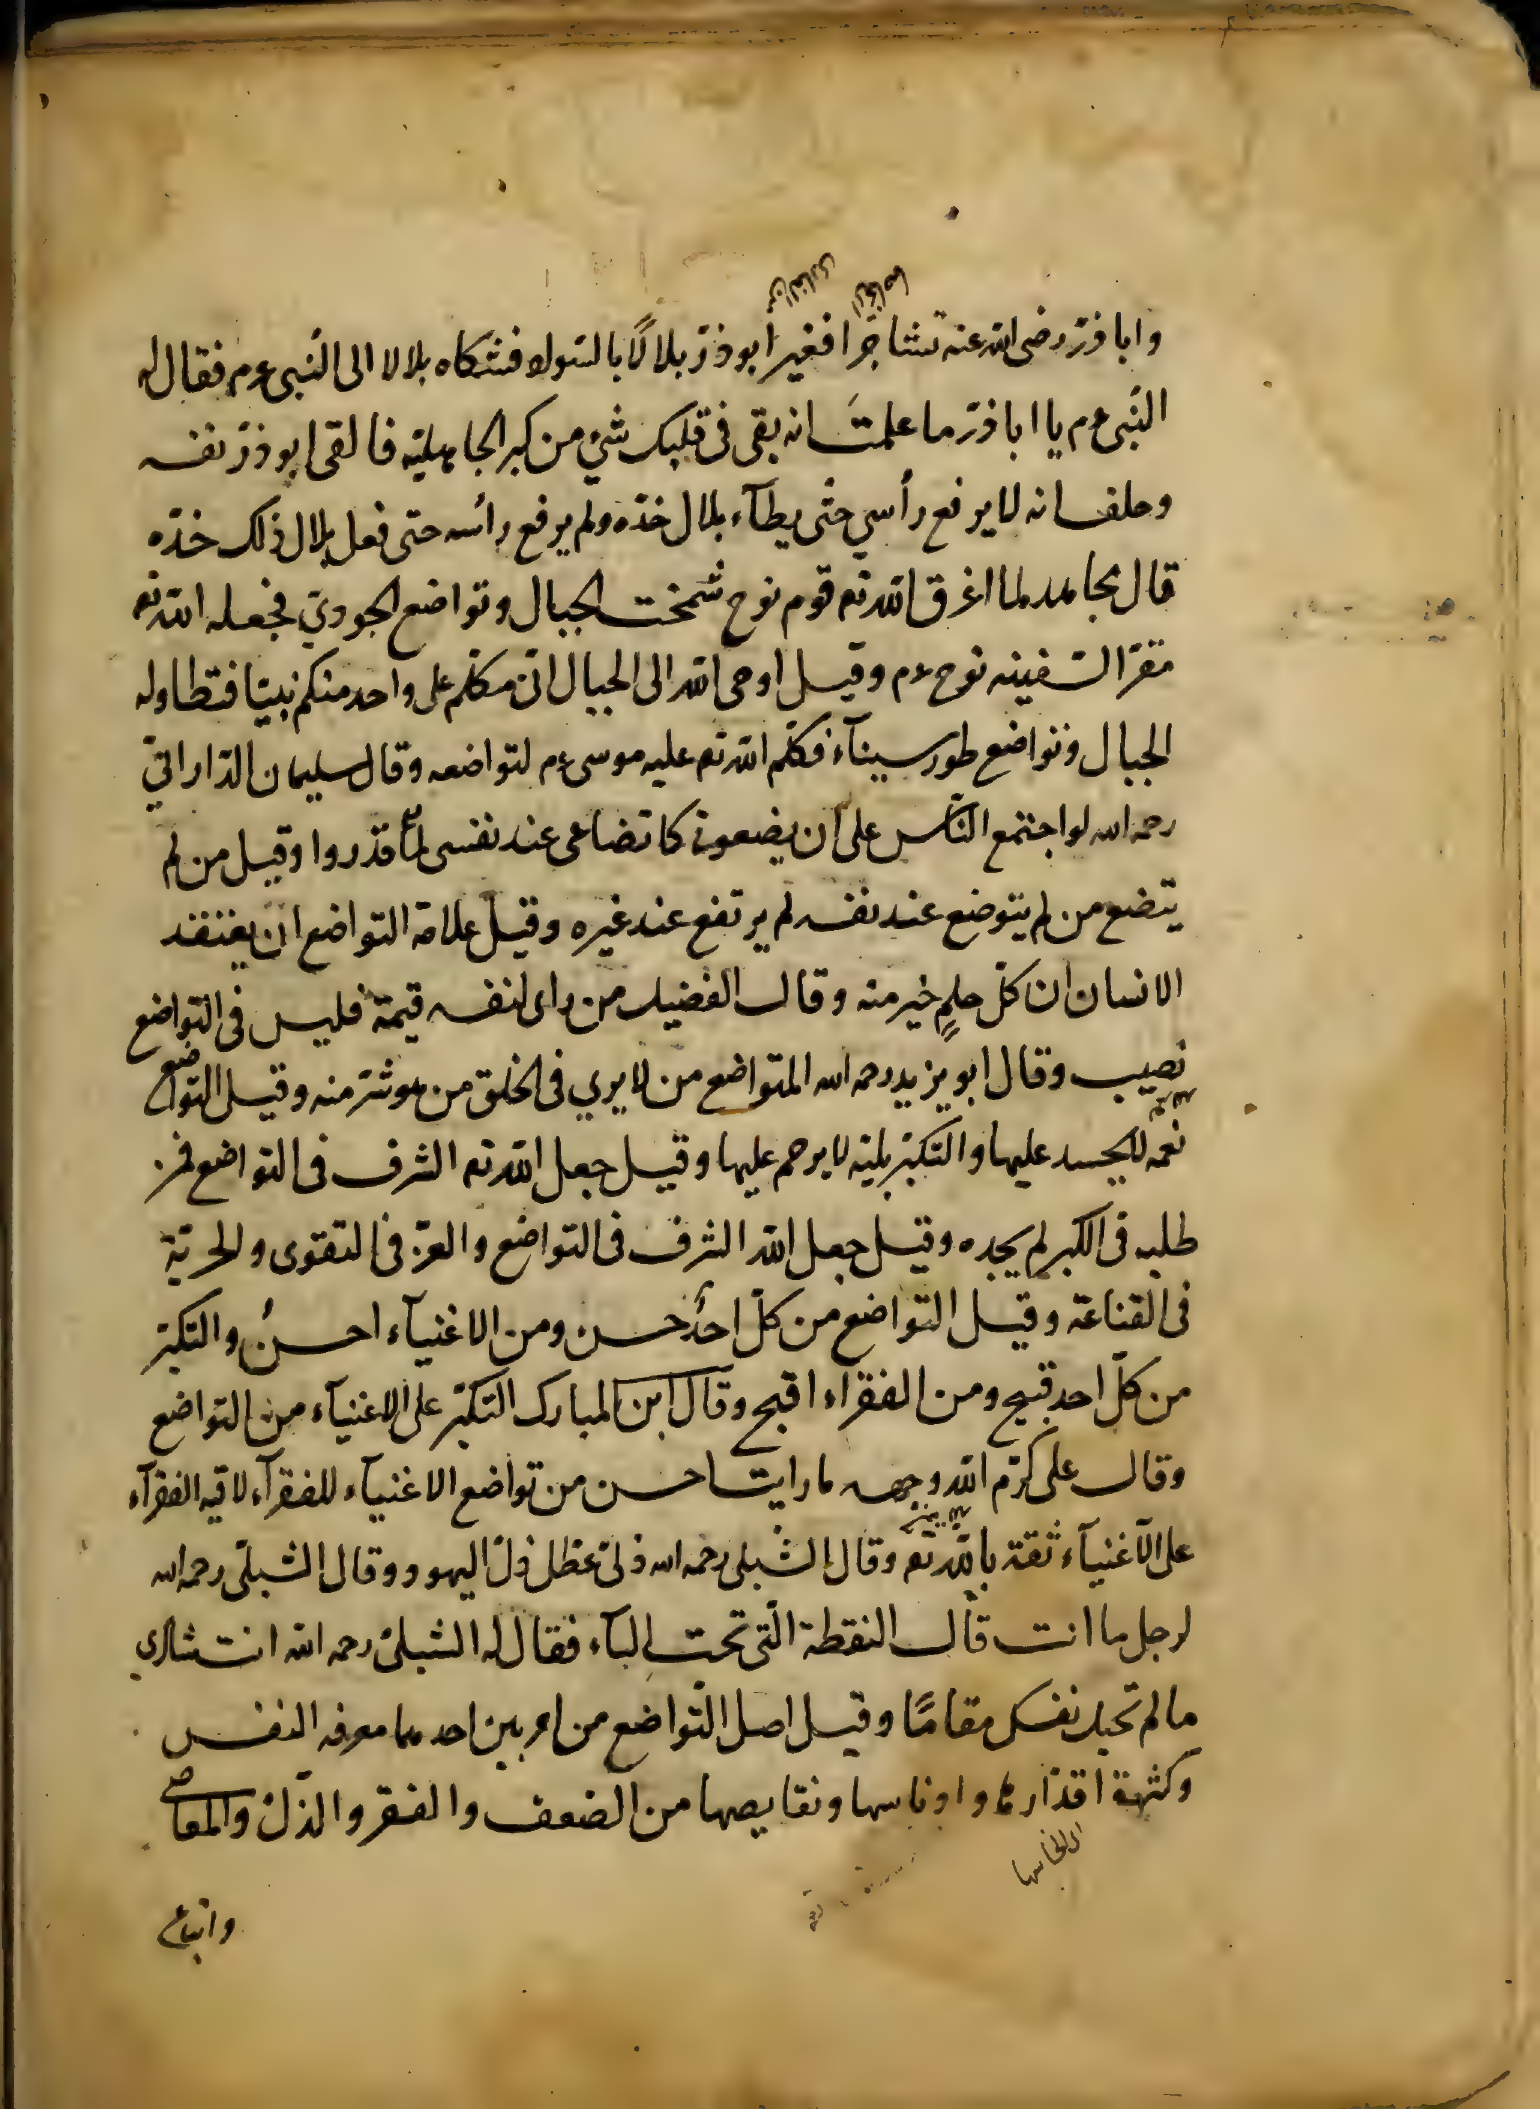 وابا ذرّ رضى الله عنه تشاجرا فغير ابو ذرّ بلالًا بالسّواد فشكاه بلالا الى النّبى عم فقال له
النّبى عم يا ابا ذرّ ما علمتَ انه بقى فى قلبك شئ من كبر الجاهلية فالقى ابو ذرّ نفسه
وحلف انه لا يرفع رأسي حتّى يطآء بلال خدّه ولم يرفع رأسه حتى فعل بلال ذلك خدّه
قال مجاهد لما اغرق الله تع قوم نوح شمخت الجبال وتواضع الجودي فجعله الله تع
مقرّ السّفينه نوح عم وقيل اوحى الله الى الجبال انّى مكلّم على واحد منكم نبيّا فتطاوله
الجبال وتواضع طور سينآء فكلّم الله تع عليه موسى عم لتواضعه وقال سليمان الدّاراتيّ
رحمه الله لو اجتمع النّاس على ان يضعونى كا تضاعى عند نفسى لما قدروا وقيل من لم
يتضع من لم يتوضع عند نفسه لم يرتفع عند غيره وقيل علامة التواضع ان يعتقد
الانسان ان كلّ حلمٍ خير منه وقال الفضيل من راى لنفسه قيمة فليس فى التواضع
نصيب وقال ابو يزيد رحمه الله المتواضع من لا يري فى الخلق من هو شرّ منه وقيل التواضع
نعمه لا يحسد عليها والتكبّر بليّه لا يرحم عليها وقيل جعل الله تع الشرف فى التواضع فمن
طلبه فى الكبر لم يجده وقيل جعل الله الشرف فى التواضع والعزّ فى التقوى والحريّة
فى القناعة وقيل التواضع من كلّ احدٍ حسن ومن الاغنيآء احسنُ والتكبّر
من كلّ احد قبيح ومن الفقراء اقبح وقال ابن المبارك التكبّر على الاغنيآء من التواضع
وقال على كرّم الله وجهه ما رايت احسن من تواضع الاغنيآء للفقرآء لا تيه الفقرآء
على الاغنيآء ثقة بالله تع وقال الشّبلى رحمه الله ذلىّ عطل ذلّ اليهود وقال الشبلىّ رحمه الله
لرجل ما انت قال النقطة الّتى تحت البآء فقال له الشبلىّ رحمه الله انت شاري
ما لم تجعل نفسك مقامًا وقيل اصل التّواضع من امرين احدهما معرفة النفس
وكثرة اقذارها وادناسها ونقايصها من الضعف والفقر والذّلّ والمعاصى
واتباع